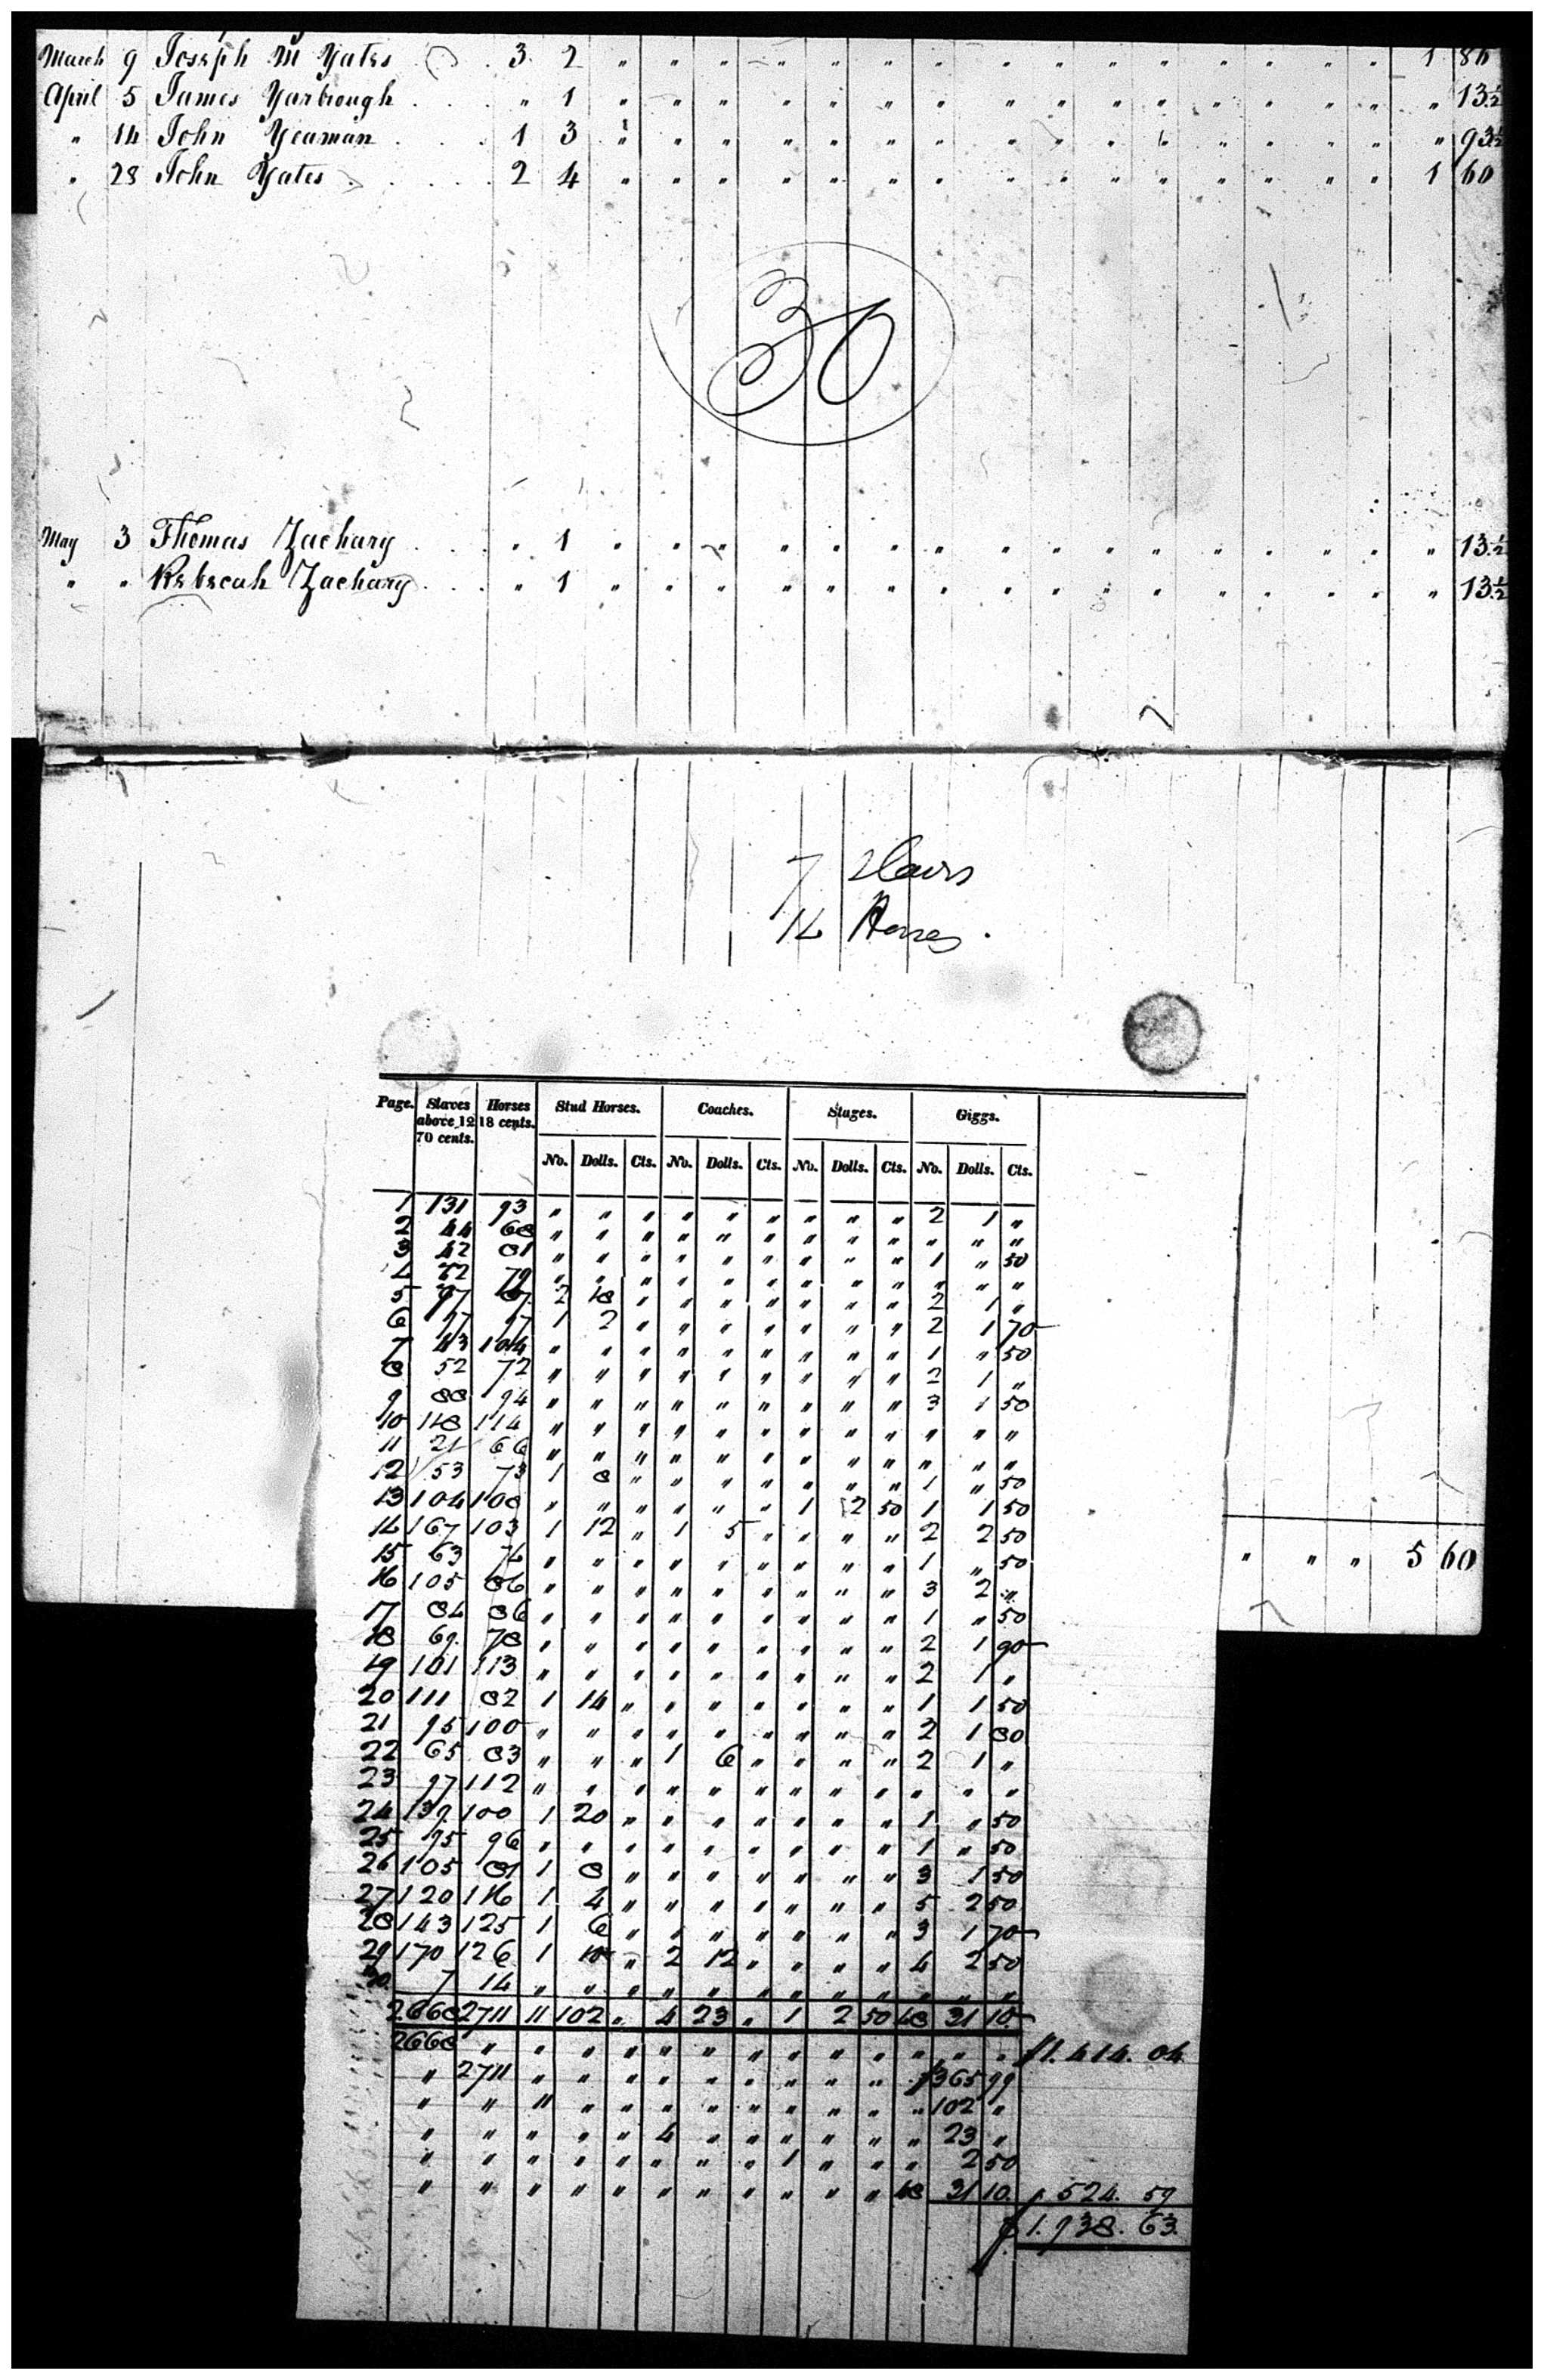 March 9 Joseph M Yates 3 2 " " " " " " " " " " " " " " " 1 86
April 5 James Yarbrough " 1 " " " " " " " " " " " " " " " " 13½
" 14 John Yeaman 1 3 " " " " " " " " " " " " " " " " 93½
" 28 John Yates 2 4 " " " " " " " " " " " " " " " 1 60
30
May 3 Thomas Zachary " 1 " " " " " " " " " " " " " " " " 13½
" " Rebecah Zachary " 1 " " " " " " " " " " " " " " " " 13½
7 Slaves
14 Horses.
" " " 5 60
Page. Slaves above 12 70 cents. Horses 18 cents. Stud Horses. Coaches. Stages. Giggs.
No. Dolls. Cts. No. Dolls. Cts. No. Dolls. Cts. No. Dolls. Cts.
1 131 93 " " " " " " " " " 2 1 "
2 44 68 " " " " " " " " " " " "
3 42 81 " " " " " " " " " 1 " 50
4 72 79 " " " " " " " " " " " "
5 97 87 2 18 " " " " " " " 2 1 "
6 77 77 1 2 " " " " " " " 2 1 70
7 43 104 " " " " " " " " " 1 " 50
8 52 72 " " " " " " " " " 2 1 "
9 88 94 " " " " " " " " " 3 1 50
10 118 114 " " " " " " " " " " " "
11 21 66 " " " " " " " " " " " "
12 53 73 1 8 " " " " " " " 1 " 50
13 104 108 " " " " " " 1 2 50 1 1 50
14 167 103 1 12 " 1 5 " " " " 2 2 50
15 63 76 " " " " " " " " " 1 " 50
16 105 86 " " " " " " " " " 3 2 "
17 84 86 " " " " " " " " " 1 " 50
18 69 78 " " " " " " " " " 2 1 90
19 101 113 " " " " " " " " " 2 1 "
20 111 82 1 14 " " " " " " " 1 1 50
21 95 100 " " " " " " " " " 2 1 80
22 65 83 " " " 1 6 " " " " 2 1 "
23 97 112 " " " " " " " " " " " "
24 139 100 1 20 " " " " " " " 1 " 50
25 95 96 " " " " " " " " " 1 " 50
26 105 81 1 8 " " " " " " " 3 1 50
27 120 116 1 4 " " " " " " " 5 2 50
28 143 125 1 6 " " " " " " " 3 1 70
29 170 126 1 10 " 2 12 " " " " 4 2 50
30 7 14 " " " " " " " " " " " "
2668 2711 11 102 " 4 23 " 1 2 50 48 31 10
2668 " " " " " " " " " " " " " $1.414.04
" 2711 " " " " " " " " " $365 99
" " 11 " " " " " " " " " 102 "
" " " " " 4 " " " " " " 23 "
" " " " " " " " 1 " " " 2 50
" " " " " " " " " " " 48 31 10. $524.59
$1.938.63.